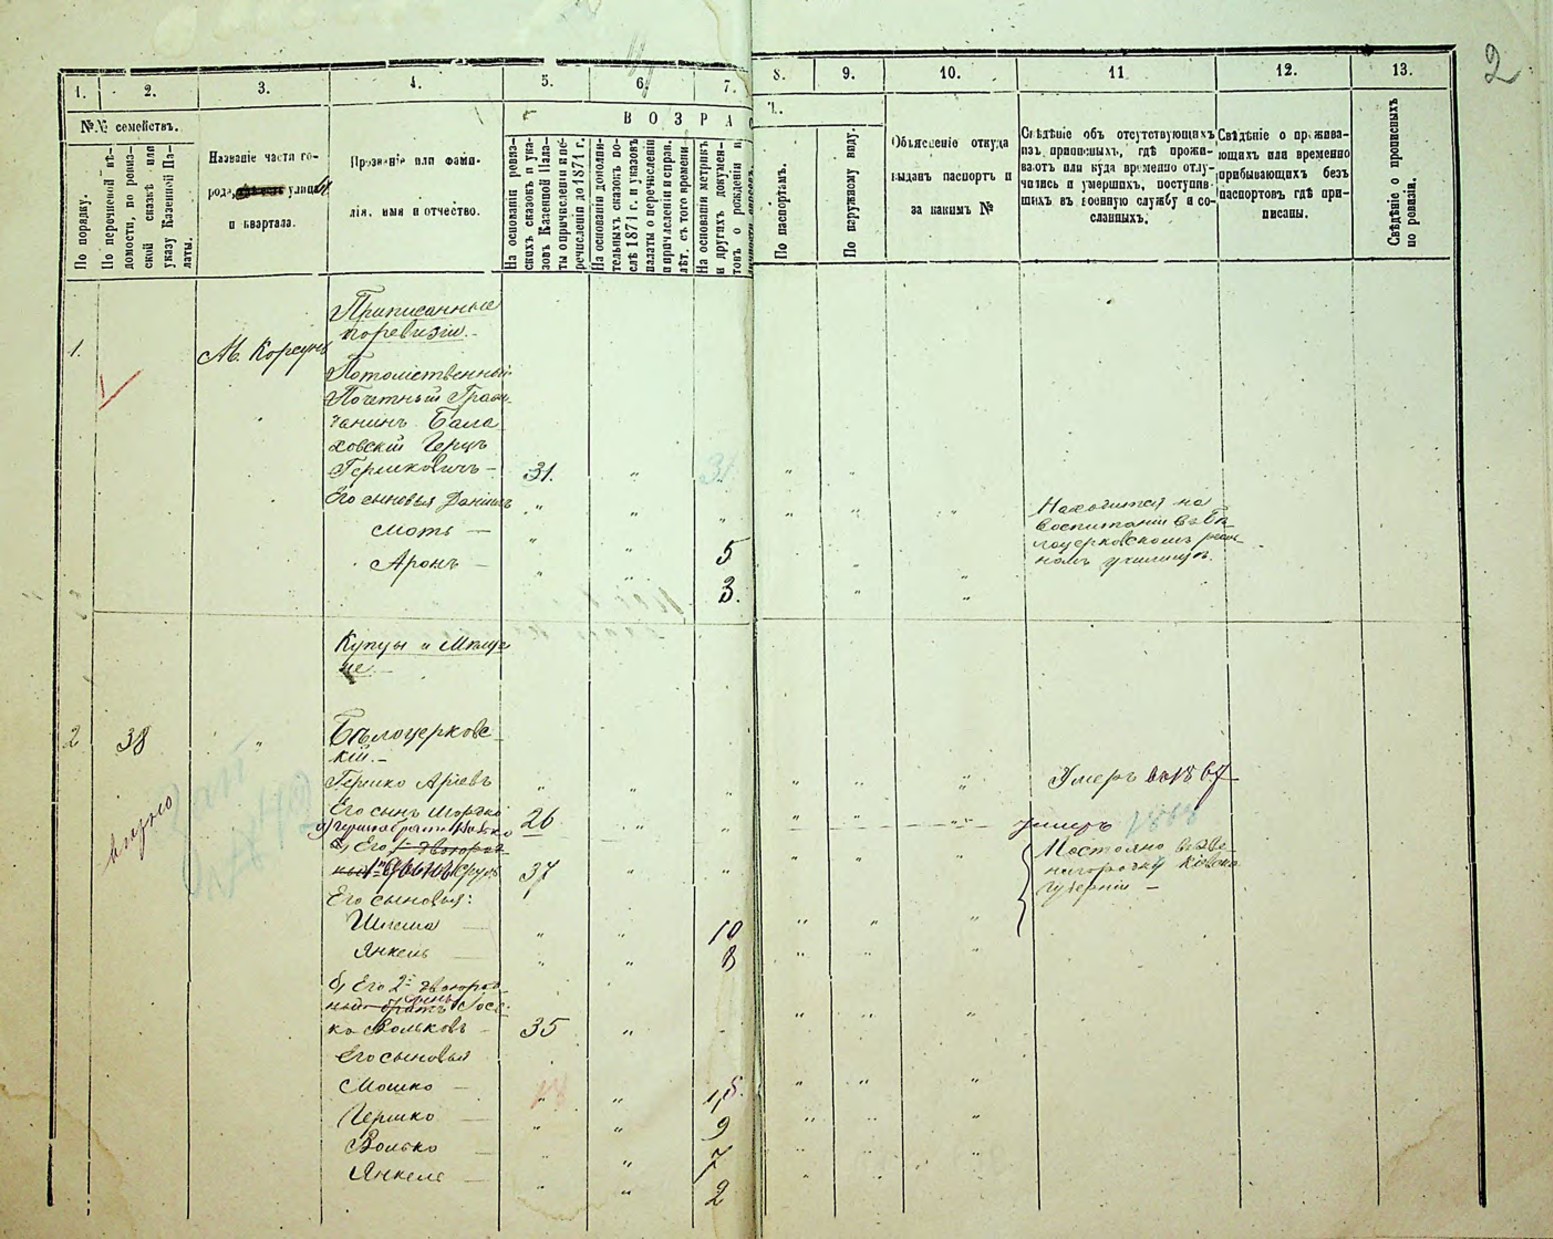 2
1.
2.
3.
4.
5.
6.
7.
8.
9.
10.
11
12.
13.
№№ семействъ.
По порядку.
По перечневой вѣ-
домости, по ревиз-
ской сказкѣ или
указу Казенной Па-
латы.
Названіе части го-
рода, улицы
и квартала.
Прозваніе или фами-
лія, имя и отчество.
ВОЗРА
На основаніи ревиз-
скихъ сказокъ и ука-
зовъ Казенной Пала-
ты о причисленіи и пе-
речисленіи до 1871 г.
На основаніи дополни-
тельныхъ сказокъ по-
слѣ 1871 г. и указовъ
палаты о перечисленіи
и причисленіи и справ.
лѣт. съ того времени
На основаніи метрикъ
и другихъ докумен-
товъ о рожденіи и
Т.
По паспортамъ.
По наружному виду.
Объясненіе откуда
выданъ паспортъ и
за какимъ №
Свѣдѣніе объ отсутствующихъ
изъ приписныхъ, гдѣ прожи-
ваютъ или куда временно отлу-
чились и умершихъ, поступив-
шихъ въ военную службу и со-
сланныхъ.
Свѣдѣніе о прожива-
ющихъ или временно
прибывающихъ безъ
паспортовъ гдѣ при-
писаны.
Свѣдѣніе о прописныхъ
по ревизіи.
Приписанные
по ревизіи.
1.
М. Корсунь
Потомственный
Почетный Граж-
данинъ Бала
ховскій Герцъ
Гершковичъ — 31. 31
Его сыновья Даніилъ
Мотъ — 5
Аронъ — 3.
Находится на
воспитаніи въ Бѣ
лоцерковскомъ реаль-
номъ училищѣ.
Купцы и Мѣща
не —
2 38
Бѣлоцерковс
кій. —
Гершко Аріевъ
Умеръ въ 1867
Его сынъ Мордко 26
умеръ
а) Его двоюрод
ный Сруль 37
Постоянно въ Зве
нигородку Кіевской
губерніи —
Его сыновья:
Шлема — 10
Янкель — 8
б) Его 2й двоюрод
ный братъ сынъ Іось
ко Вольковъ — 35
Его сыновья
Мошко — 18 15.
Гершко — 9
Волько — 7
Янкель — 2